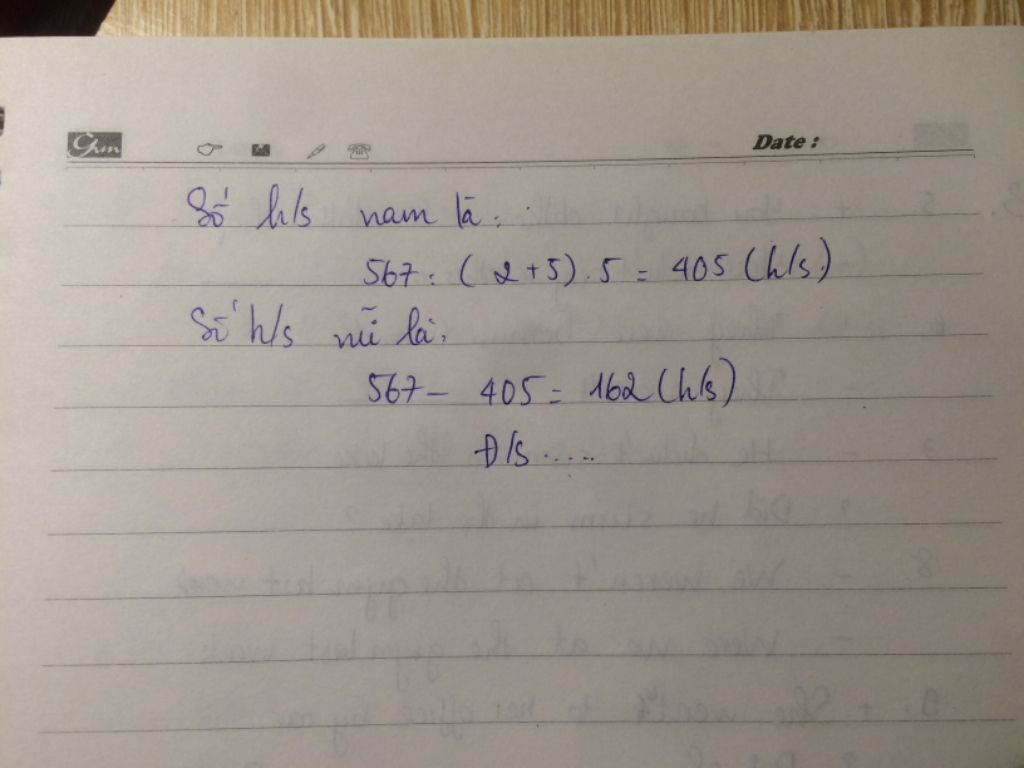 Grm Date :
Số h/s nam là:
567 : ( 2 + 5) . 5 = 405 (h/s)
Số h/s nữ là:
567 - 405 = 162 (h/s)
Đ/s .....